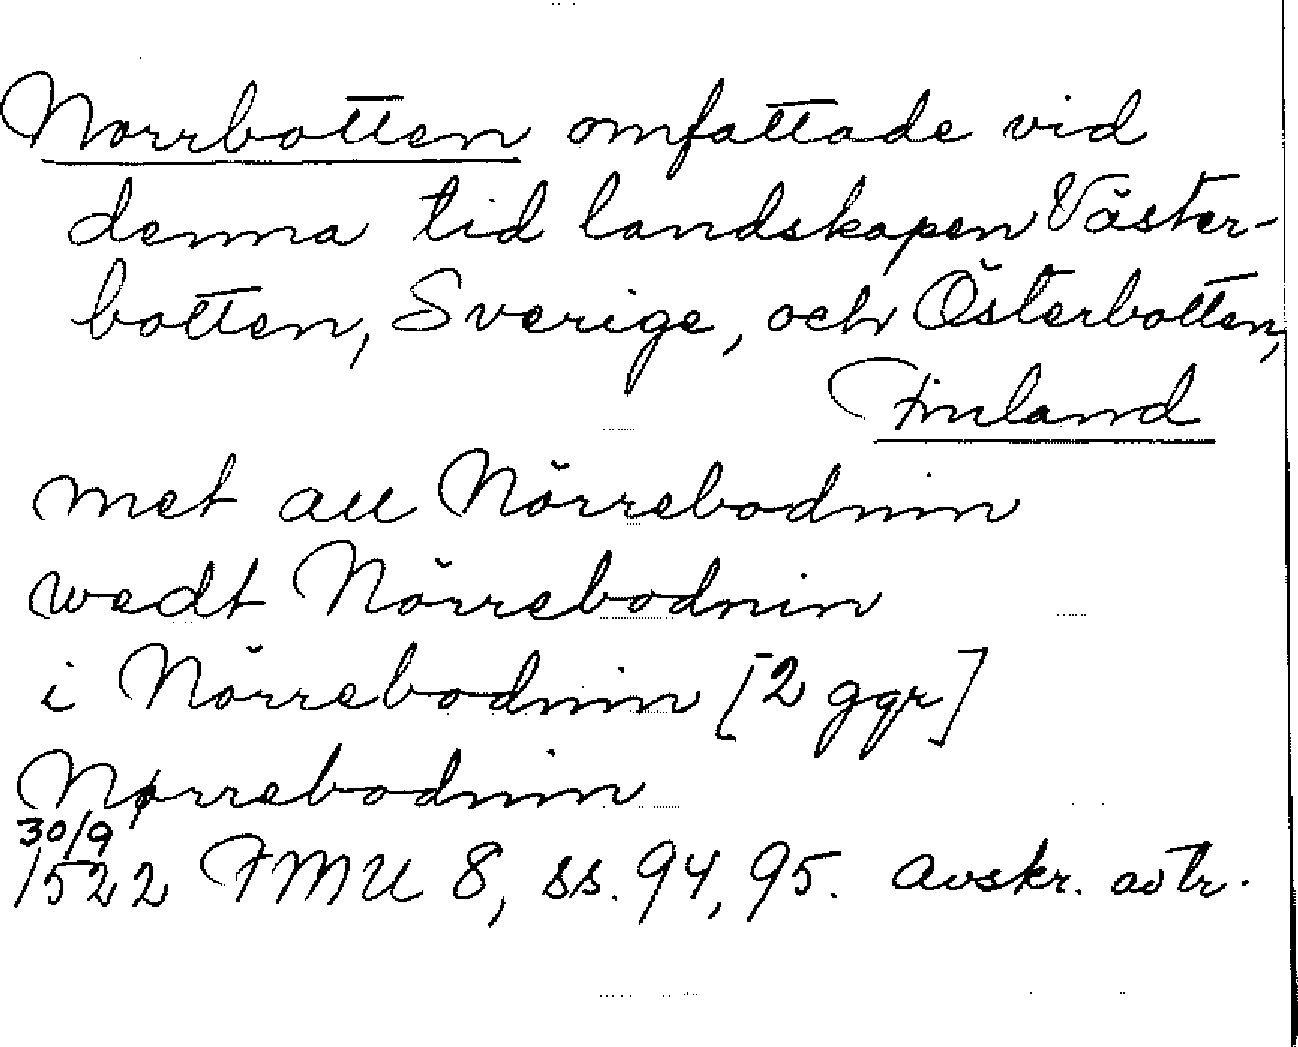 Norrbotten omfattade vid
denna tid landskapen Väster-
botten, Sverige, och Österbotten,
Finland
met all Nörrebodnin
wedt Nörrebodnin
i Nörrebodnin [2 ggr]
Nørrebodnin
30/9
1522 FMU 8, ss. 94, 95. Avskr. avtr.